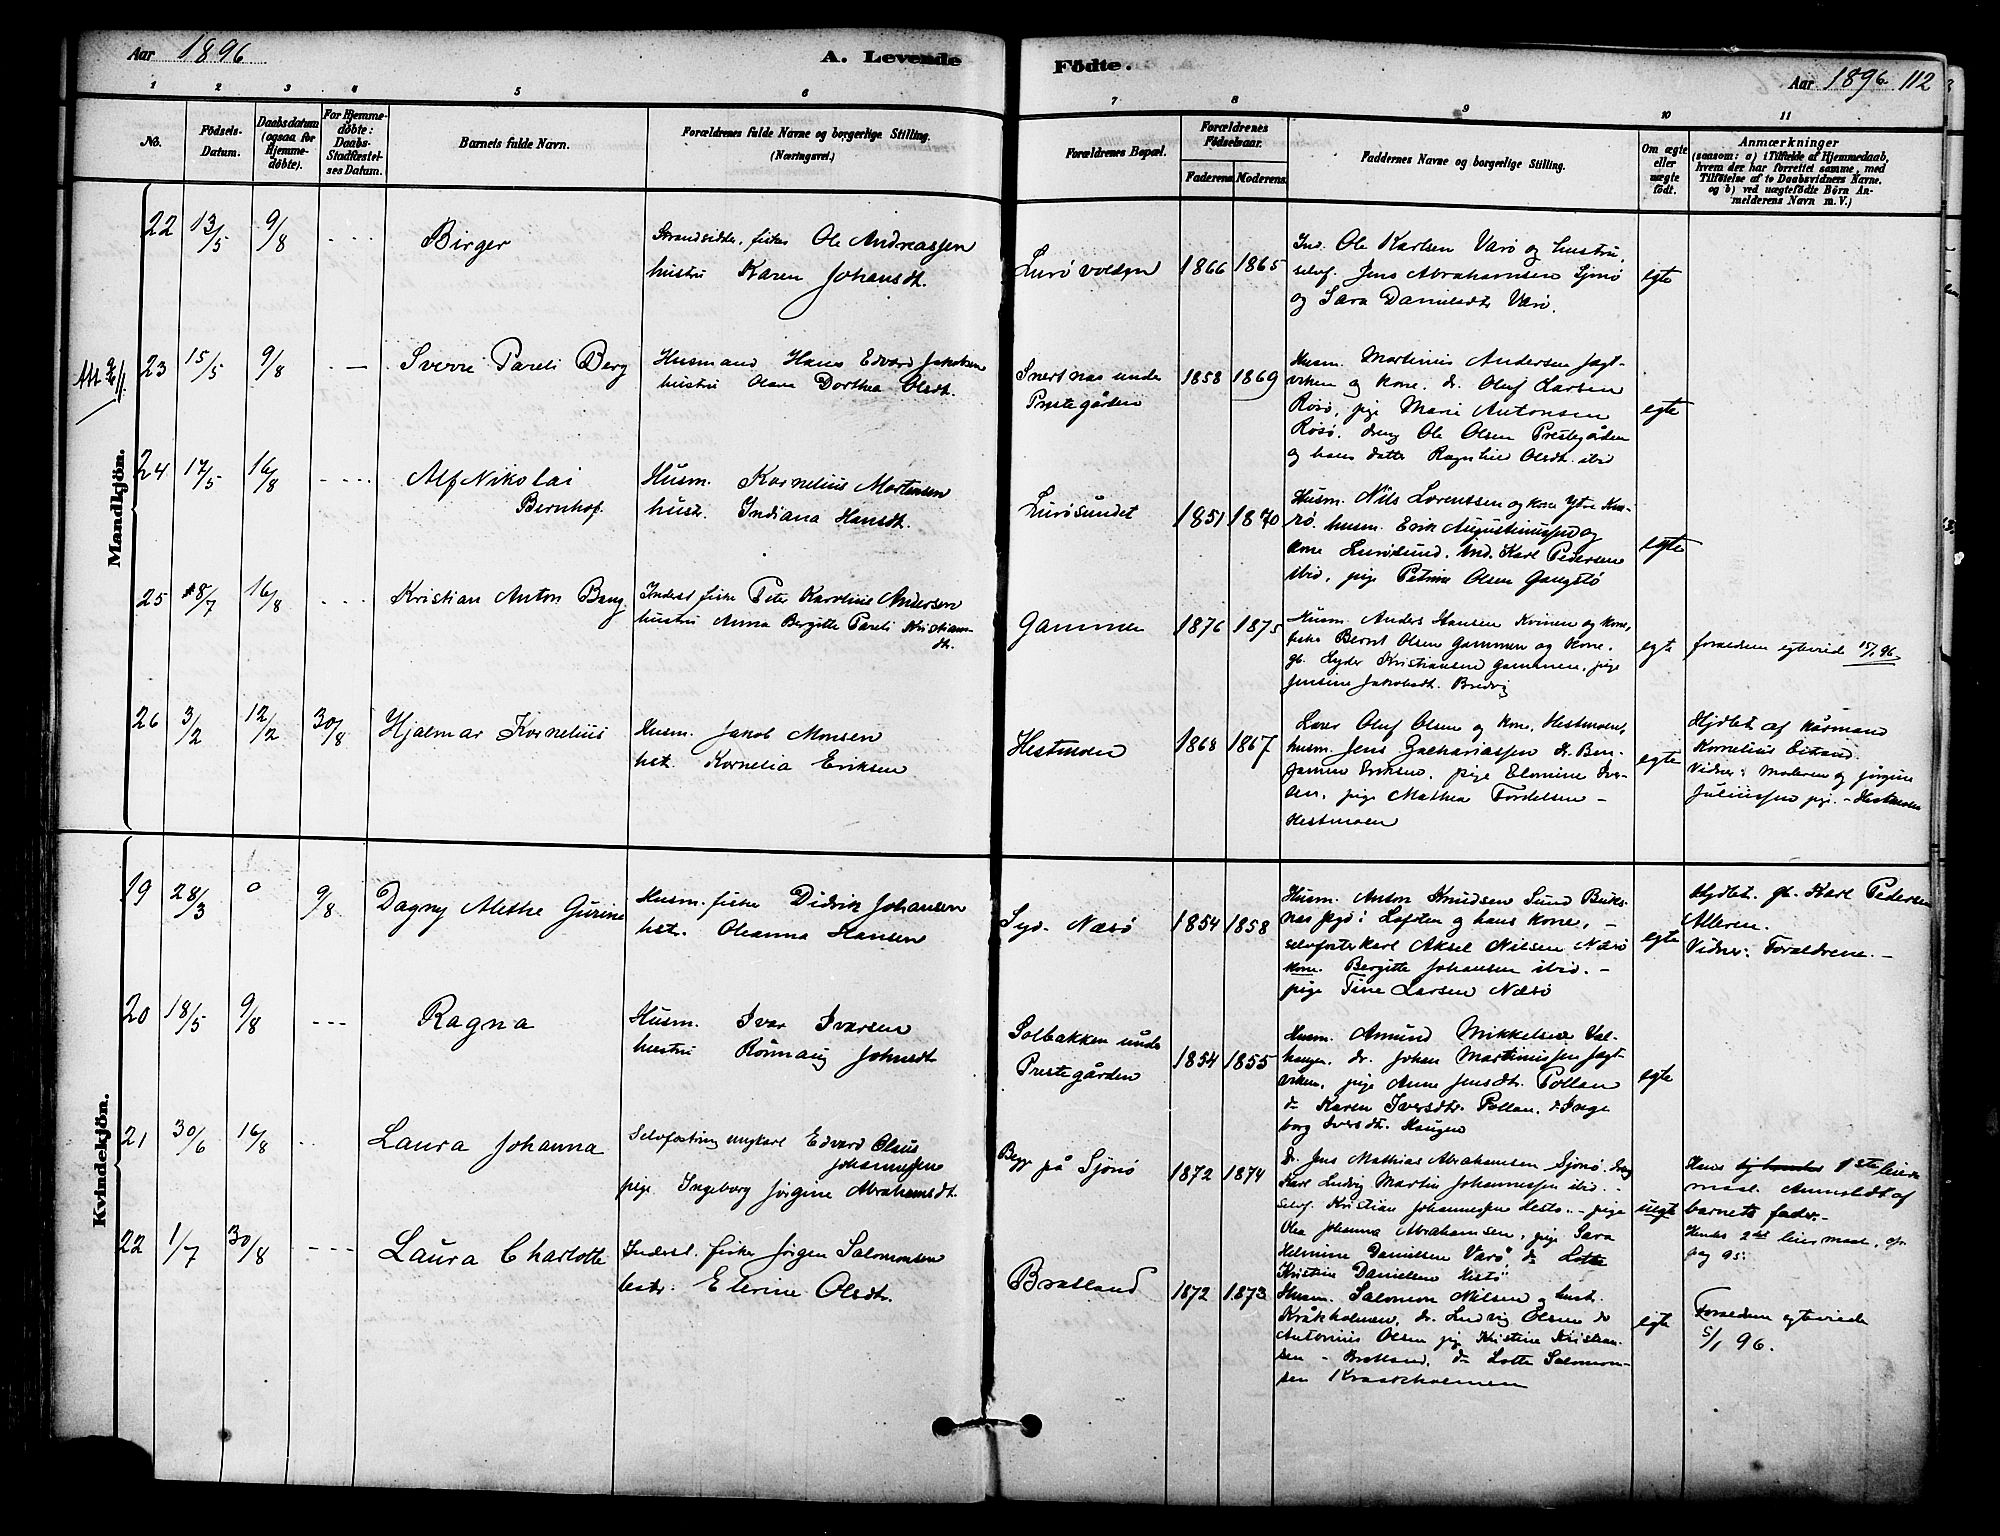 Aar 1896
A. Levende
Fødte.
Aar 1896 112
1 2 3 4 5 6 7 8 9 10 11
No.
Fødsels-
Datum.
Daabsdatum
(ogsaa for
Hjemme-
døbte).
For Hjemme-
døbte:
Daabs-
Stadfæstel-
ses Datum.
Barnets fulde Navn.
Forældrenes fulde Navne og borgerlige Stilling.
(Næringsvei.)
Forældrenes Bopæl.
Forældrenes
Fødselsaar.
Faderens. Moderens.
Faddernes Navne og borgerlige Stilling.
Om ægte
eller
uægte
født.
Anmærkninger
(saasom: a) i Tilfælde af Hjemmedaab,
hvem der har forrettet samme, med
Tilføielse af to Daabsvidners Navne,
og b) ved uægtefødte Børn An-
melderens Navn m. V.)
Mandkjön.
22 13/5 9/8 Birger
Strandsidder, fisker Ole Andreassen
hustru Karen Johansdt.
Lurøvolden 1866 1865
Ind. Ole Karlsen Varø og hustru,
selvf. Jens Abrahamsen Sjonø
og Sara Danielsdtr Varø.
egte
Att
23 15/5 9/8 Sverre Pareli Berg
Husmand Hans Edvard Jakobsen
hustru Olava Dorthea Olsdt.
Snertnæs under
Prestegården
1858 1869
Husm. Martinus Andersen Jagt-
viken og kone, dr. Oluf Larsen
Rosø, pige Marie Antonsen
Rosø, dreng Ole Olsen Prestegården
og hans datter Ragnhild Olsdt. ibid
egte
24 17/5 16/8 Alf Nikolai
Bernhof
Husm. Kornelius Mortensen
hustr. Indiana Hansdt.
Lurøsundet 1851 1870
Husm. Nils Lorentsen og kone Ytre Kva-
rø, husm. Erik Augustinussen og
kone Lurøsund, ind. Karl Pedersen
ibid, pige Petrine Olsen Gangstø
egte
25 18/7 16/8 Kristian Anton Bang
Inderst fisker Peter Karolius Andersen
hustru Anna Bergitte Pareli Kristians-
dt.
Gammen 1876 1875
Husm. Anders Hansen Kvinen og kone,
fisker Bernt Olsen Gammen og kone,
gb. Lyder Kristiansen Gammen, pige
Jensine Jakobsdt. Bredvig
egte
foræeldrene egteviede 15/1 96
26 3/2 12/2 30/8 Hjalmar Kornelius
Husm. Jakob Monsen
hst. Kornelia Eriksen
Hestmoen 1868 1867
Lærer Oluf Olsen og kone, Hestmoen,
husm. Jens Zachariassen dr. Ben-
jamin Eriksen, pige Elomine Iver-
sen, pige Mathea Tordelsen -
Hestmoen
egte
Hjdbt. af kårmand
Kornelius
Vidner: Moderen og Jörgine
Juliussen pige. - Hestmoen
Kvindekjön.
19 28/3 0 9/8 Dagny Alethe Gurine
Husm. fisker Didrik Johansen
hst. Oleanna Hansen
Syd-Næsø 1854 1858
Husm. Anton Knudsen Sund Buks-
næs fjd i Lofoten og hans kone, -
selvforst. karl Aksel Nilsen Næsø
kone Bergitte Johansen ibid. -
pige Tine Larsen Næsø
egte
Hjdbt. gb. Karl Pedersen
Alleren.
Vidner: Foraldrene. -
20 18/5 9/8 Ragna
Husm. Ivar Ivarsen
hustru Rönnaug Johnsdt
Solbakken under
Prestegården
1854 1855
Husm. Amund Mikkelsen Val-
haugen, dr. Johan Martinussen Jagt-
viken, pige Anne Jensdtr. Pollan
do Karen Iversdtr. Pollan, do Inge
borg Iversdtr. Haugen
egte
21 30/6 16/8 Laura Johanna
Selvforsting ungkarl Edvard Olaus
Johannessen
pige Ingeborg Jörgine Abrahamsdt.
Begge på Sjonø 1872 1874
dr. Jens Mathias Abrahamsen Sjonø, dreng
Karl Ludvig Martin Johannessen ibid. -
selvf. Kristian Johannessen Hestø. - pige
Olea Johanna Abrahamsen, pige Sara
Helmine Danielsen Varø, do Lotte
Kristine Danielsen Hestø
uegte
Hans 1ste leier-
maal. Anmeldt af
barnets fader. -
Hendes 2det leiermaal, cfr
pag 95.
22 1/7 30/8 Laura Charlotte
Inderst. fisker Jörgen Salomonsen
hstr. Elerine Olsdtr.
Bratland 1872 1873
Husm. Salomon Nilsen og hust.
Kråkholmen, dr. Ludvig Olsen do
Antonius Olsen pige Kristine Kristian-
sen - Bratland, do Lotte Salomon-
sen Kraakholmen
egte
Forældrene egteviede
5/1 96.